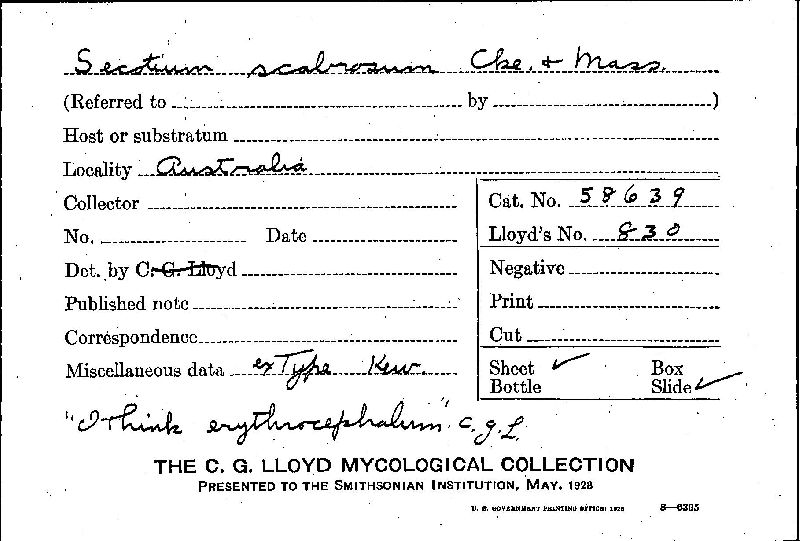 Secotium scabrosum Cke. & Mass.
(Referred to by )
Host or substratum
Locality Australia
Collector
Cat. No. 58639
No. Date
Lloyd's No. 830
Det. by C. G. Lloyd
Negative
Published note
Print
Correspondence
Cut
Miscellaneous data ex Type Kew.
Sheet ✓ Box
Bottle Slide ✓
"I think erythrocephalum" C.G.L.
THE C. G. LLOYD MYCOLOGICAL COLLECTION
PRESENTED TO THE SMITHSONIAN INSTITUTION, MAY, 1928
U. S. GOVERNMENT PRINTING OFFICE: 1928 8—6395